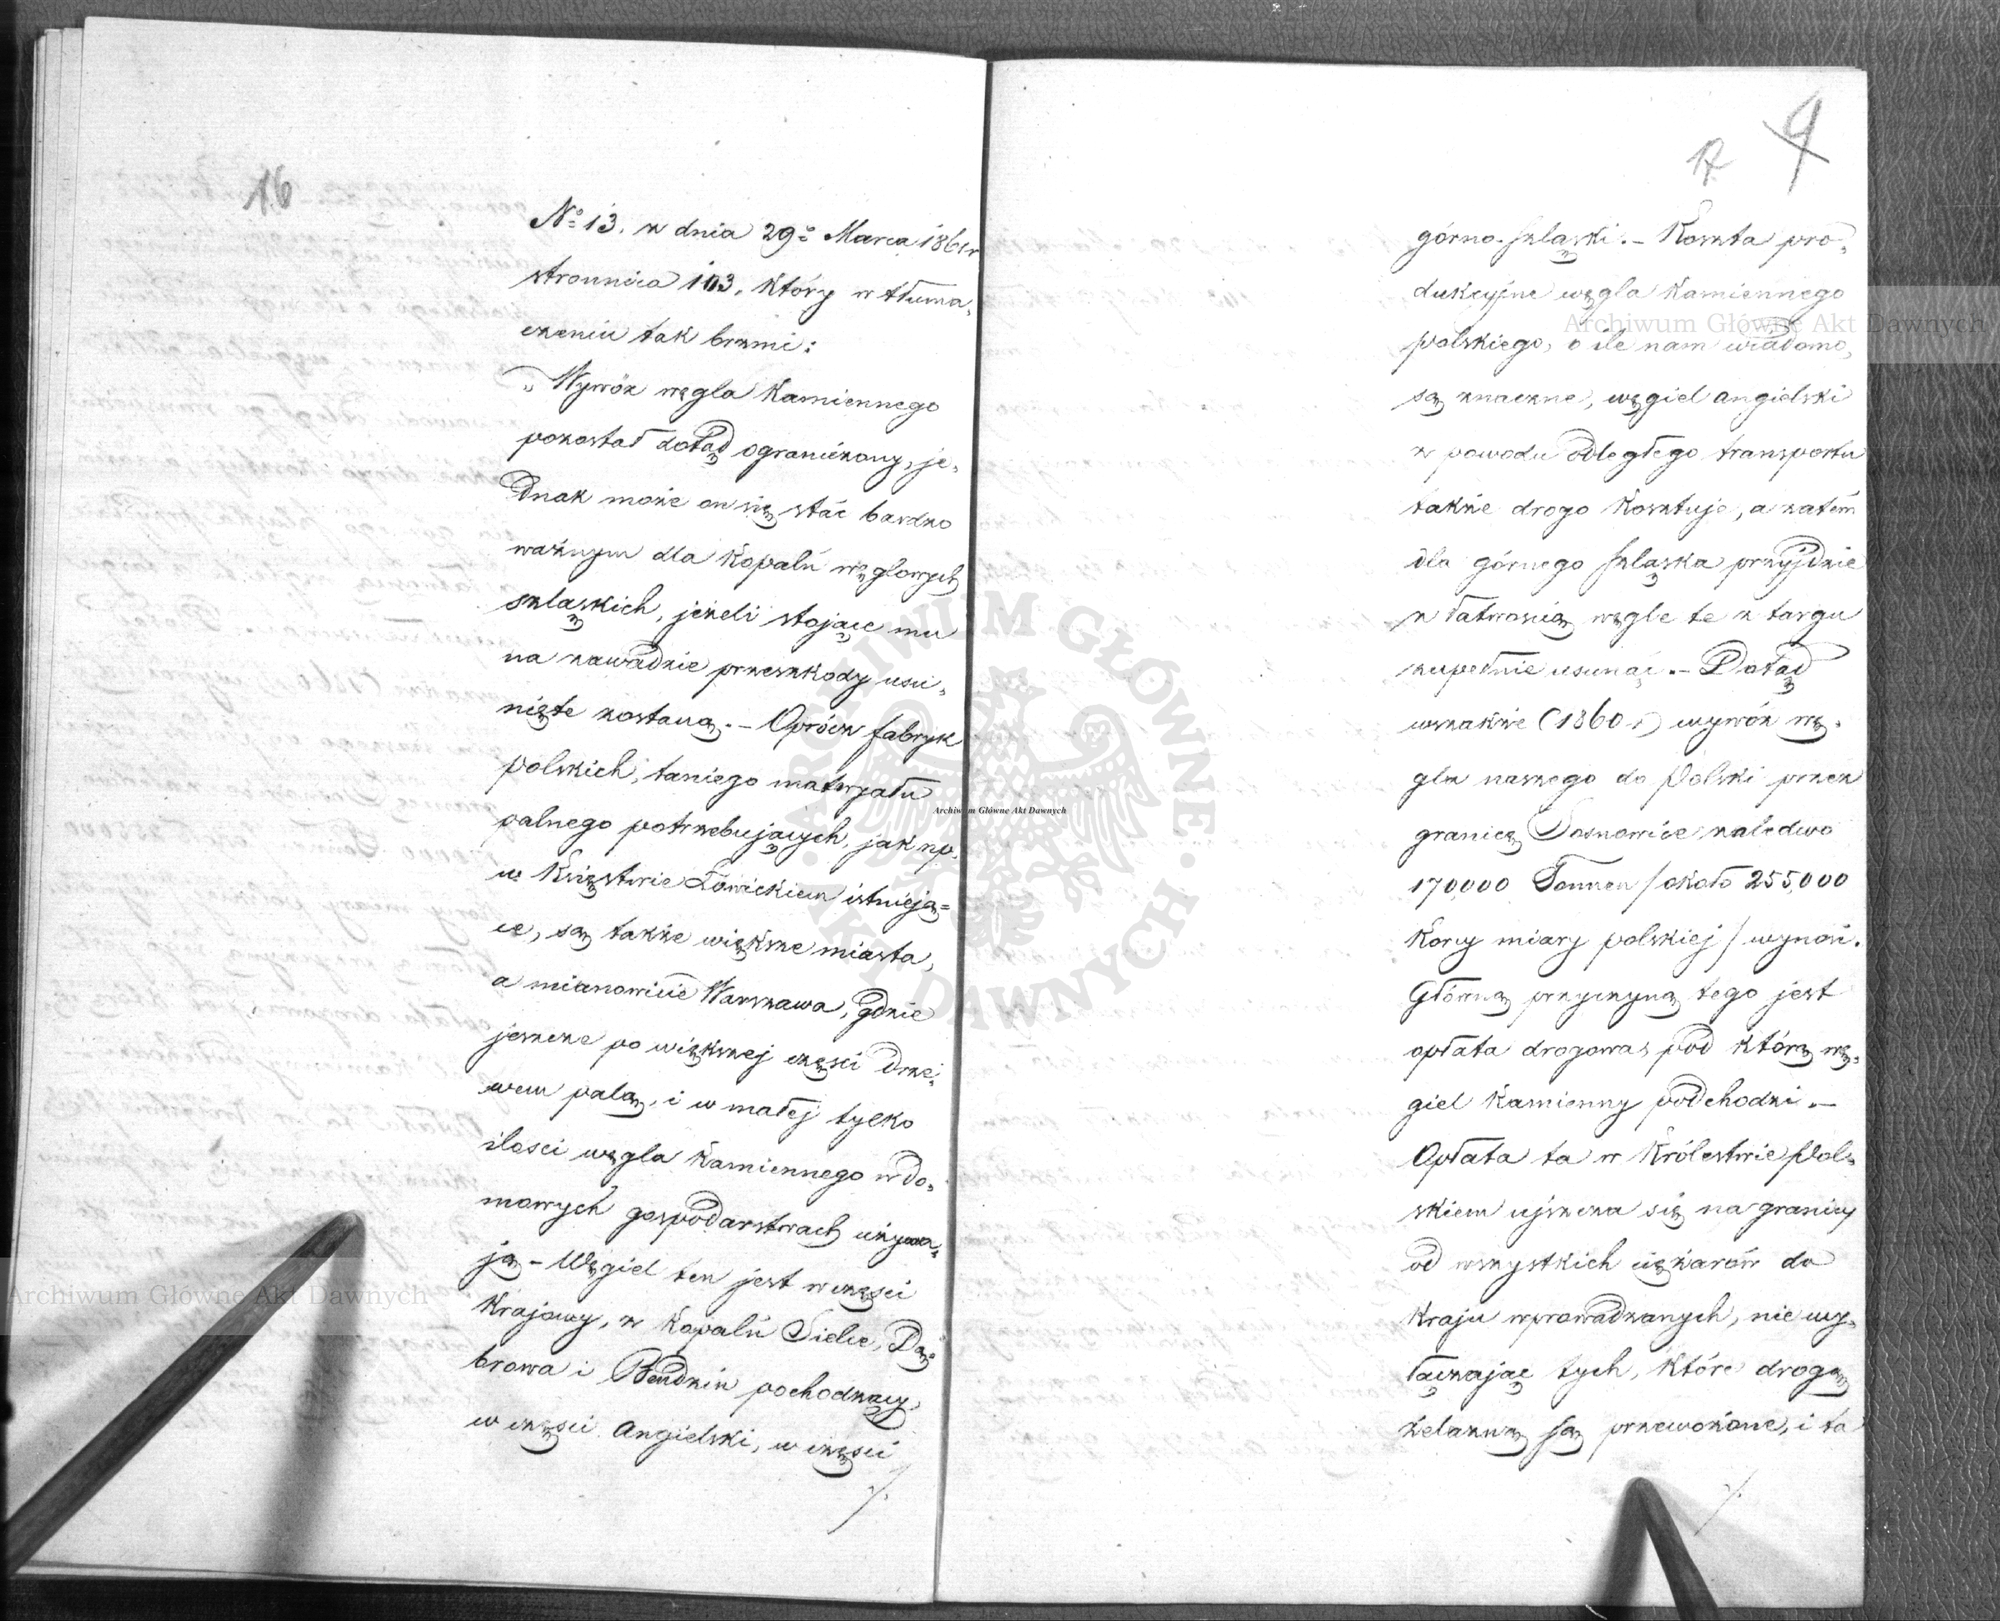 16
No 13. z dnia 29o Marca 1861 r
stronnica 103, który w tłuma-
czeniu tak brzmi:
„Wywóz węgla Kamiennego
pozostał dotąd ograniczony, je-
dnak może on się stać bardzo
ważnym dla Kopalń węglowych
szląskich, jeżeli stojące mu
na zawadzie przeszkody usu-
nięte zostaną. – Oprócz fabryk
polskich, taniego materjału
palnego potrzebujących, jak np.
w Księstwie Łowickiem istnieją=
ce, są także większe miasta,
a mianowicie Warszawa, gdzie
jeszcze po większej części drze-
wem palą, i w małej tylko
ilości węgla Kamiennego w do-
mowych gospodarstwach używa-
ją – Węgiel ten jest w części
Krajowy, z Kopalń Sielce, Dą-
browa i Bendzin pochodzący,
w części Angielski, w części
./.
17 9
górno-szląski. – Koszta pro-
dukcyjne węgla Kamiennego
polskiego, o ile nam wiadomo,
są znaczne, węgiel angielski
z powodu odległego transportu
także drogo Kosztuje, a zatém
dla górnego szląska przyjdzie
z łatwością węgle te z targu
zupełnie usunąć. – Dotąd
wszakże (1860 r) wywóz wę-
gla naszego do Polski przez
granicę Sosnowice zaledwo
170,000 Tonnen /około 255,000
Korcy miary polskiej/ wynosi.
Główną przyczyną tego jest
opłata drogowa, pod którą wę-
giel Kamienny podchodzi. –
Opłata ta w Królestwie Pol-
skiem ujszcza się na granicy
od wszystkich ciężarów do
Kraju wprowadzanych, nie wy-
łączając tych, które drogą
żelazną są przewożone, i ta
./.
Archiwum Główne Akt Dawnych
Archiwum Główne Akt Dawnych
Archiwum Główne Akt Dawnych
ARCHIWUM GŁÓWNE · AKT DAWNYCH ·